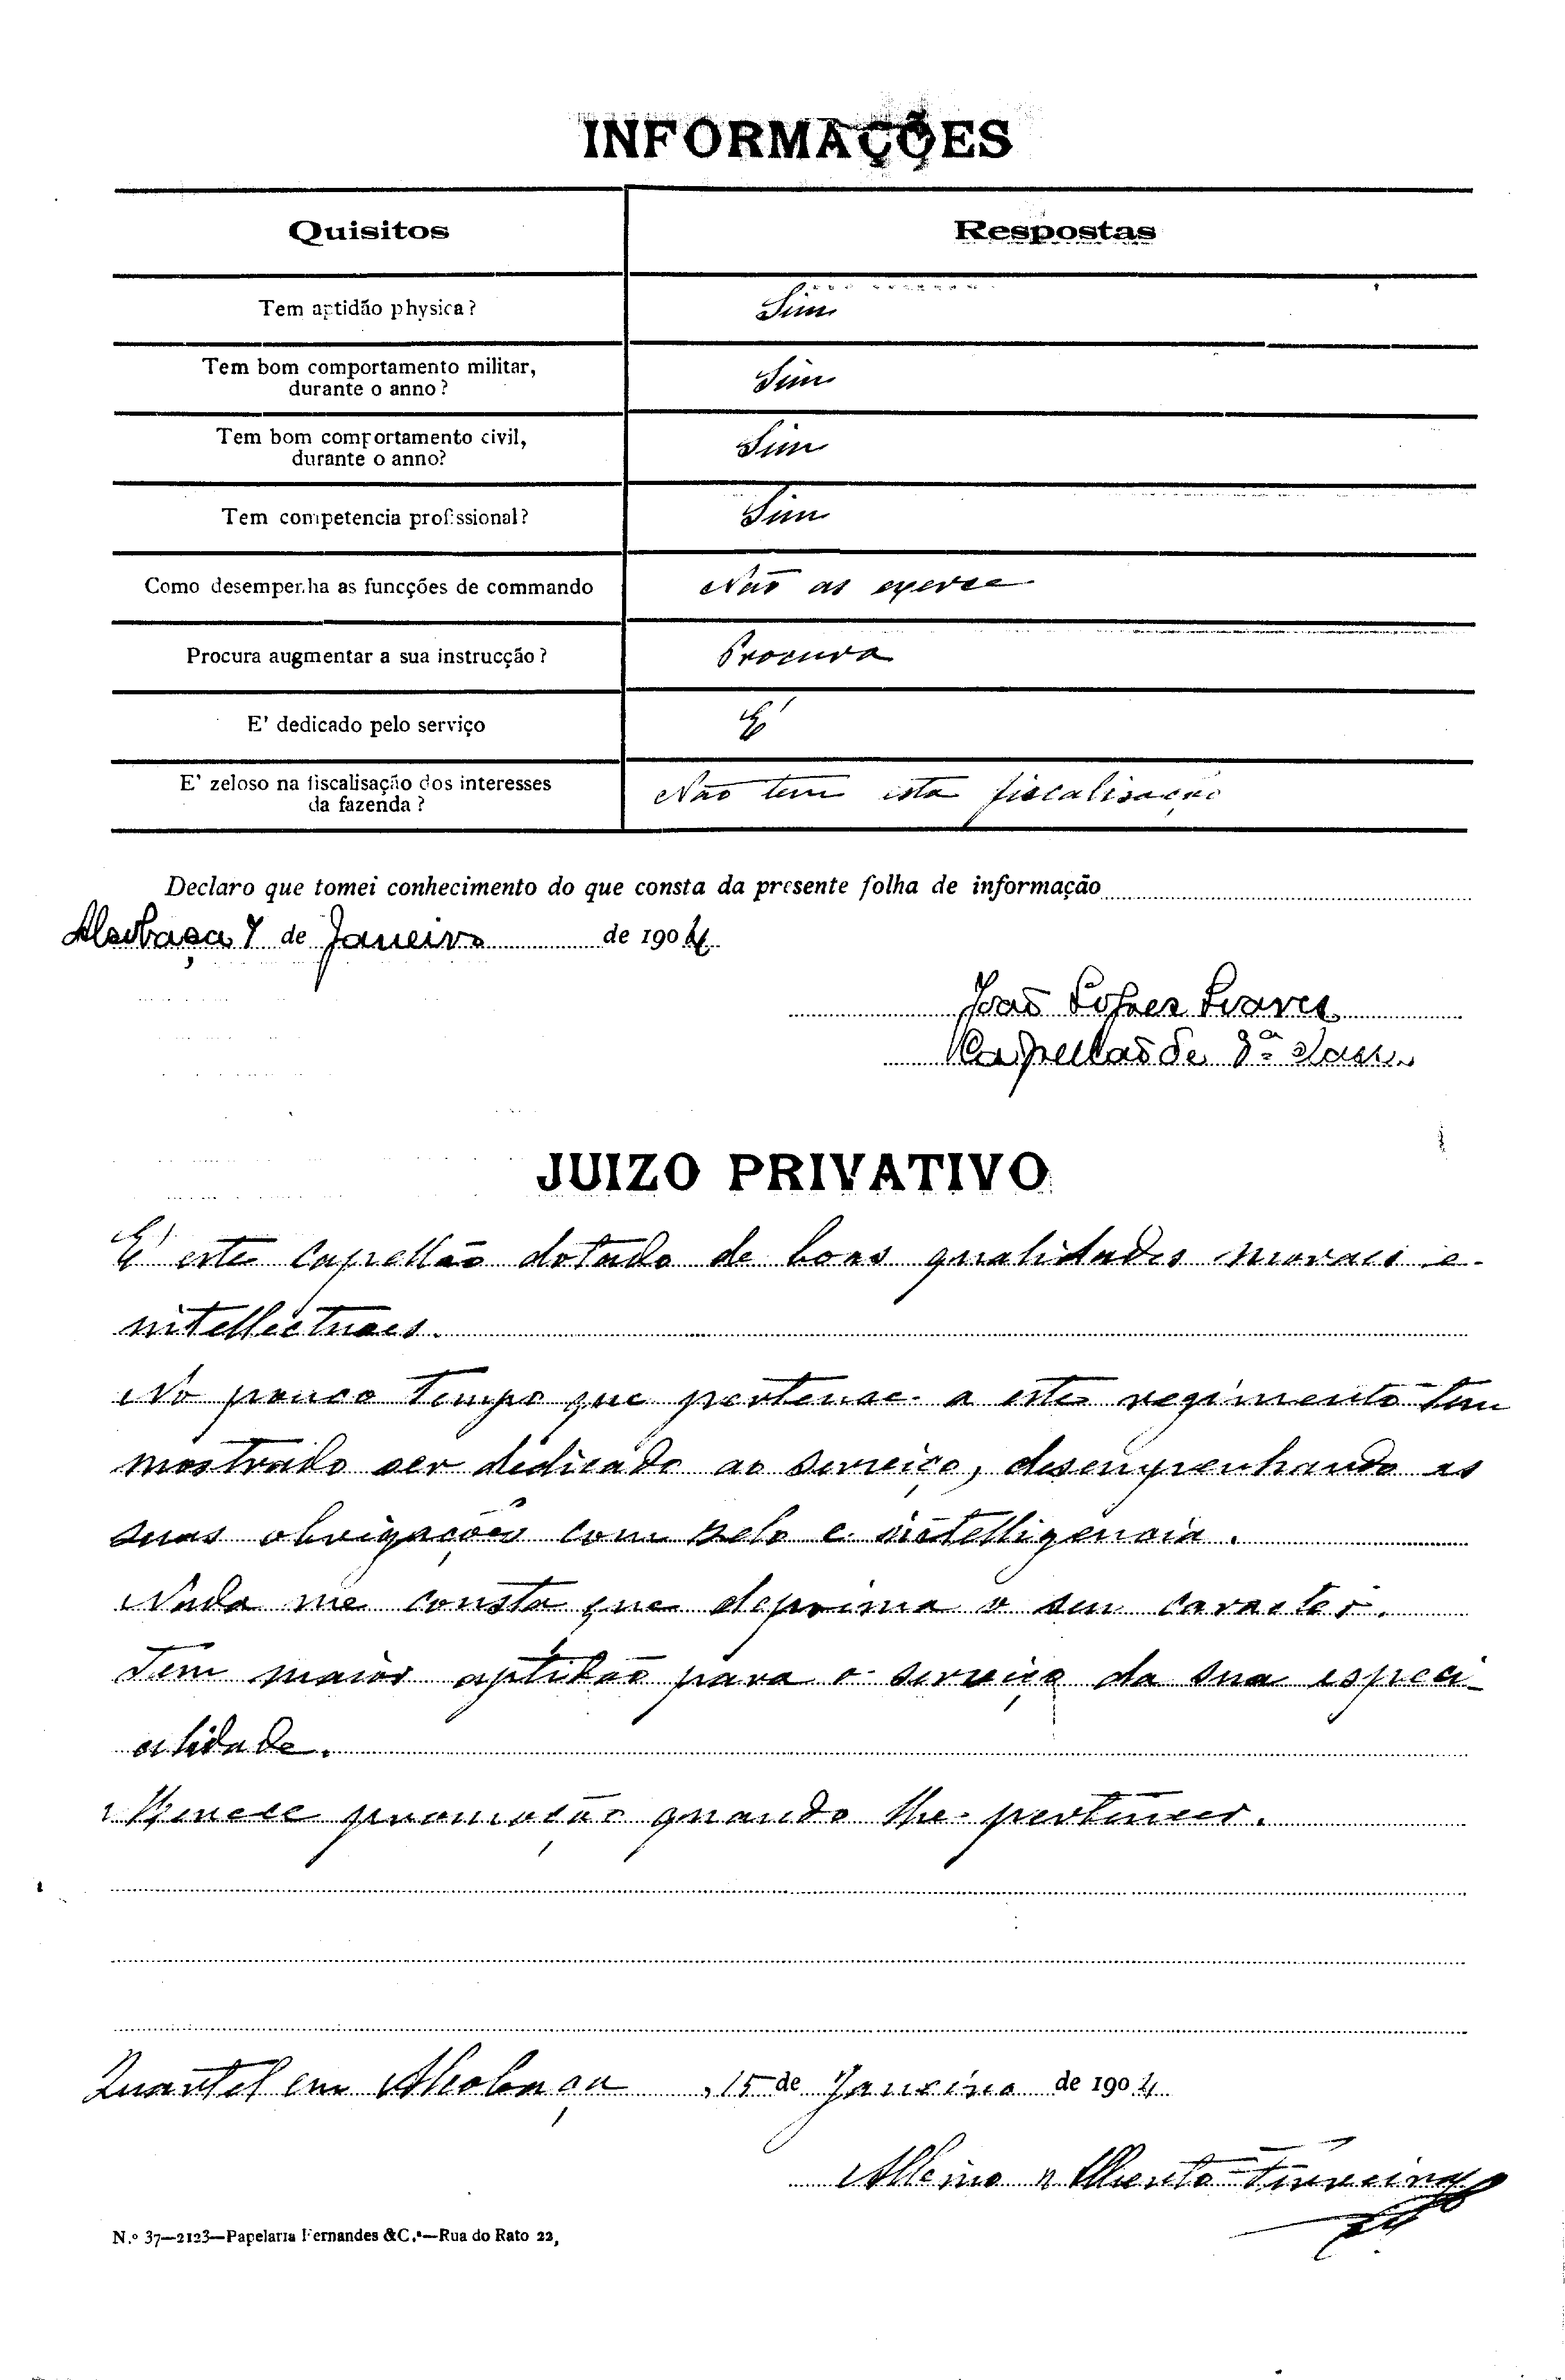 INFORMAÇÕES
Quisitos Respostas
Tem aptidão physica? Sim
Tem bom comportamento militar,
durante o anno? Sim
Tem bom comportamento civil,
durante o anno? Sim
Tem competencia profissional? Sim
Como desempenha as funcções de commando Não as exerce
Procura augmentar a sua instrucção? Procura
E' dedicado pelo serviço E'
E' zeloso na fiscalisação dos interesses
da fazenda? Não tem esta fiscalisação
Declaro que tomei conhecimento do que consta da presente folha de informação
Alcobaça 7 de Janeiro de 1904
João Lopes Soares
Capellão de 3ª classe
JUIZO PRIVATIVO
E' este capellão dotado de boas qualidades moraes e
intellectuaes.
No pouco tempo que pertence a este regimento tem
mostrado ser dedicado ao serviço, desempenhando as
suas obrigações com zelo e intelligencia.
Nada me consta que deprima o seu caracter.
Tem maior aptidão para o serviço da sua especi-
alidade.
Merece promoção quando lhe pertencer.
Quartel em Alcobaça, 15 de Janeiro de 1904
Ferreira
N.º 37—2123—Papelaria Fernandes & C.ª—Rua do Rato 22,